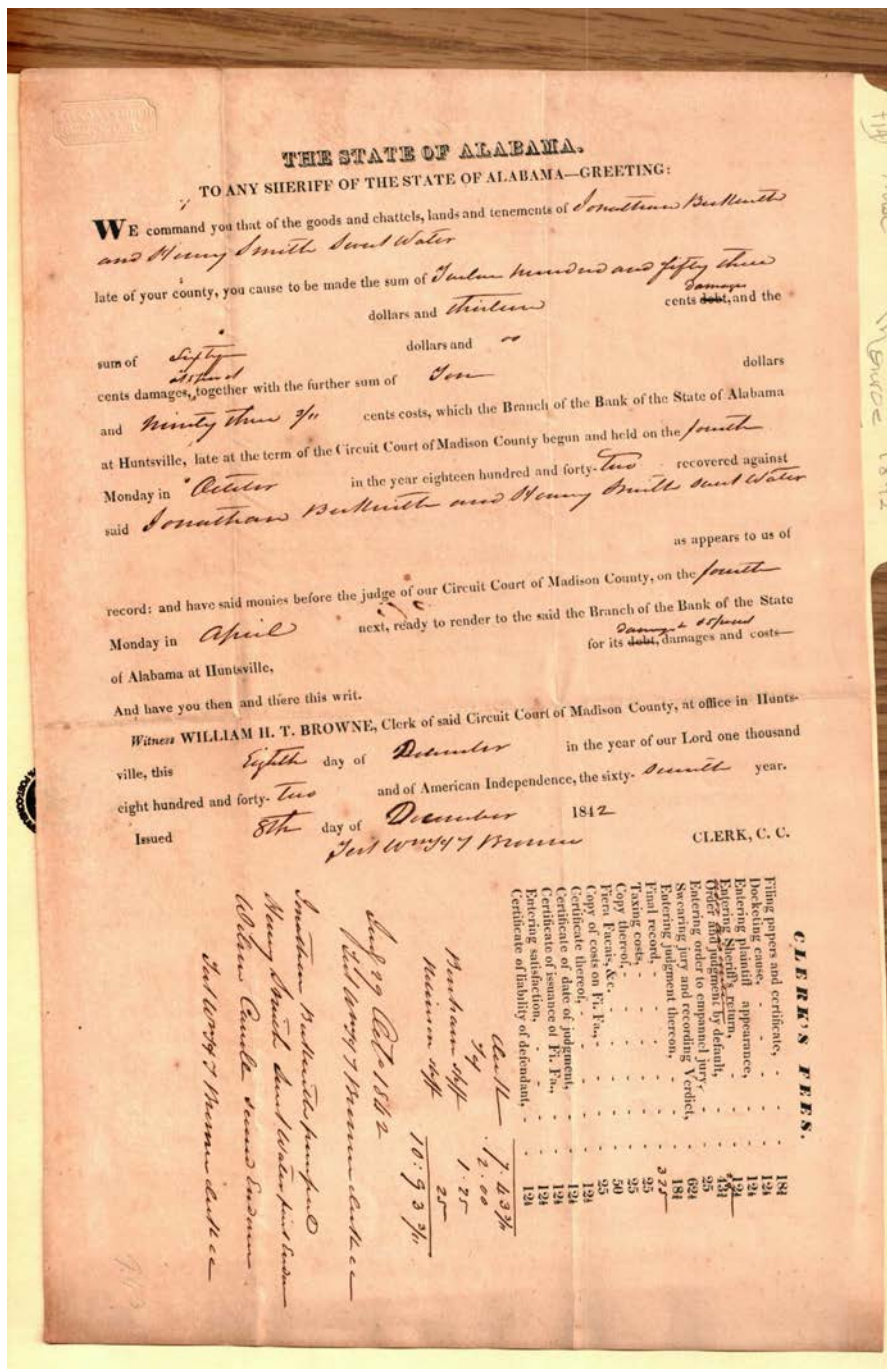 THE STATE OF ALABAMA.
TO ANY SHERIFF OF THE STATE OF ALABAMA—GREETING:
WE command you that of the goods and chattels, lands and tenements of Jonathan Beckwith
and Henry Smith Sweet Water
late of your county, you cause to be made the sum of Twelve hundred and fifty three
dollars and thirteen cents debt, damages and the
sum of Sixty dollars and 00
cents damages, together with the further sum of Ten dollars
and Ninety three cents costs, which the Branch of the Bank of the State of Alabama
at Huntsville, late at the term of the Circuit Court of Madison County begun and held on the fourth
Monday in October in the year eighteen hundred and forty-two recovered against
said Jonathan Beckwith and Henry Smith Sweet Water
as appears to us of
record: and have said monies before the judge of our Circuit Court of Madison County, on the fourth
Monday in April next, ready to render to the said the Branch of the Bank of the State
of Alabama at Huntsville, for its debt, damages and costs—
And have you then and there this writ.
Witness WILLIAM H. T. BROWNE, Clerk of said Circuit Court of Madison County, at office in Hunts-
ville, this Eighth day of December in the year of our Lord one thousand
eight hundred and forty-two and of American Independence, the sixty-seventh year.
Issued 8th day of December 1842
Test Wm H T Browne CLERK, C. C.
CLERK'S FEES.
Filing papers and certificate, 18¾
Docketing cause, 12½
Entering plaintiff appearance, 12½
Entering Sheriff's return, 12½
Order and judgment by default, 43¾
Entering order to empannel jury, 25
Swearing jury and recording Verdict, 62½
Entering judgment thereon, 18¾
Final record, 375
Taxing costs, 25
Copy thereof, 25
Fiera Facais, &c. 50
Copy of costs on Fi. Fa., 25
Certificate thereof, 12½
Certificate of date of judgment, 12½
Certificate of issuance of Fi. Fa., 12½
Entering satisfaction, 12½
Certificate of liability of defendant, 12½
Clerk 7.43
2.00
Shff 1.25
Shff 25
10:93
29 Oct 1842
Test Wm H T Browne clerk cc
Jonathan Beckwith principal
Henry Smith Sweet Water first Endor
Wilson Caudle second Endorser
Test Wm H T Browne clerk cc
Monroe 1842